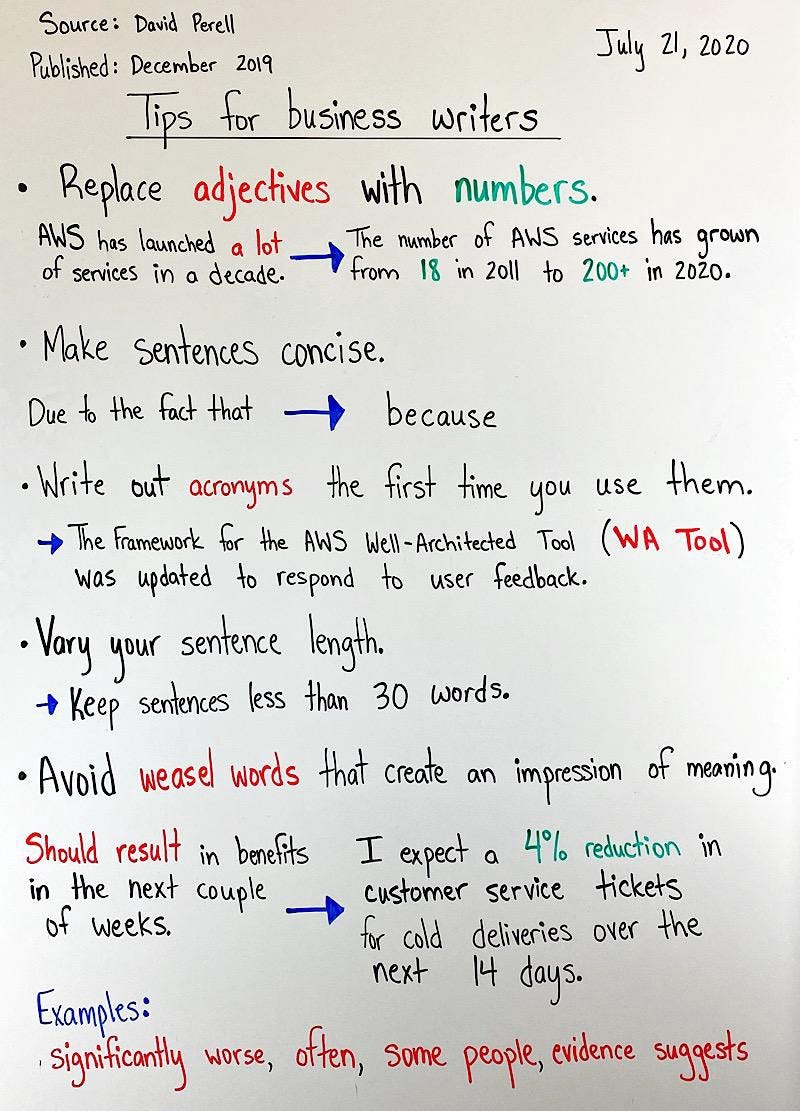 Source: David Perell
Published: December 2019
July 21, 2020
Tips for business writers
• Replace adjectives with numbers.
AWS has launched a lot
of services in a decade.
→ The number of AWS services has grown
from 18 in 2011 to 200+ in 2020.
• Make sentences concise.
Due to the fact that → because
• Write out acronyms the first time you use them.
→ The Framework for the AWS Well-Architected Tool (WA Tool)
was updated to respond to user feedback.
• Vary your sentence length.
→ Keep sentences less than 30 words.
• Avoid weasel words that create an impression of meaning.
Should result in benefits
in the next couple
of weeks.
→ I expect a 4% reduction in
customer service tickets
for cold deliveries over the
next 14 days.
Examples:
significantly worse, often, some people, evidence suggests